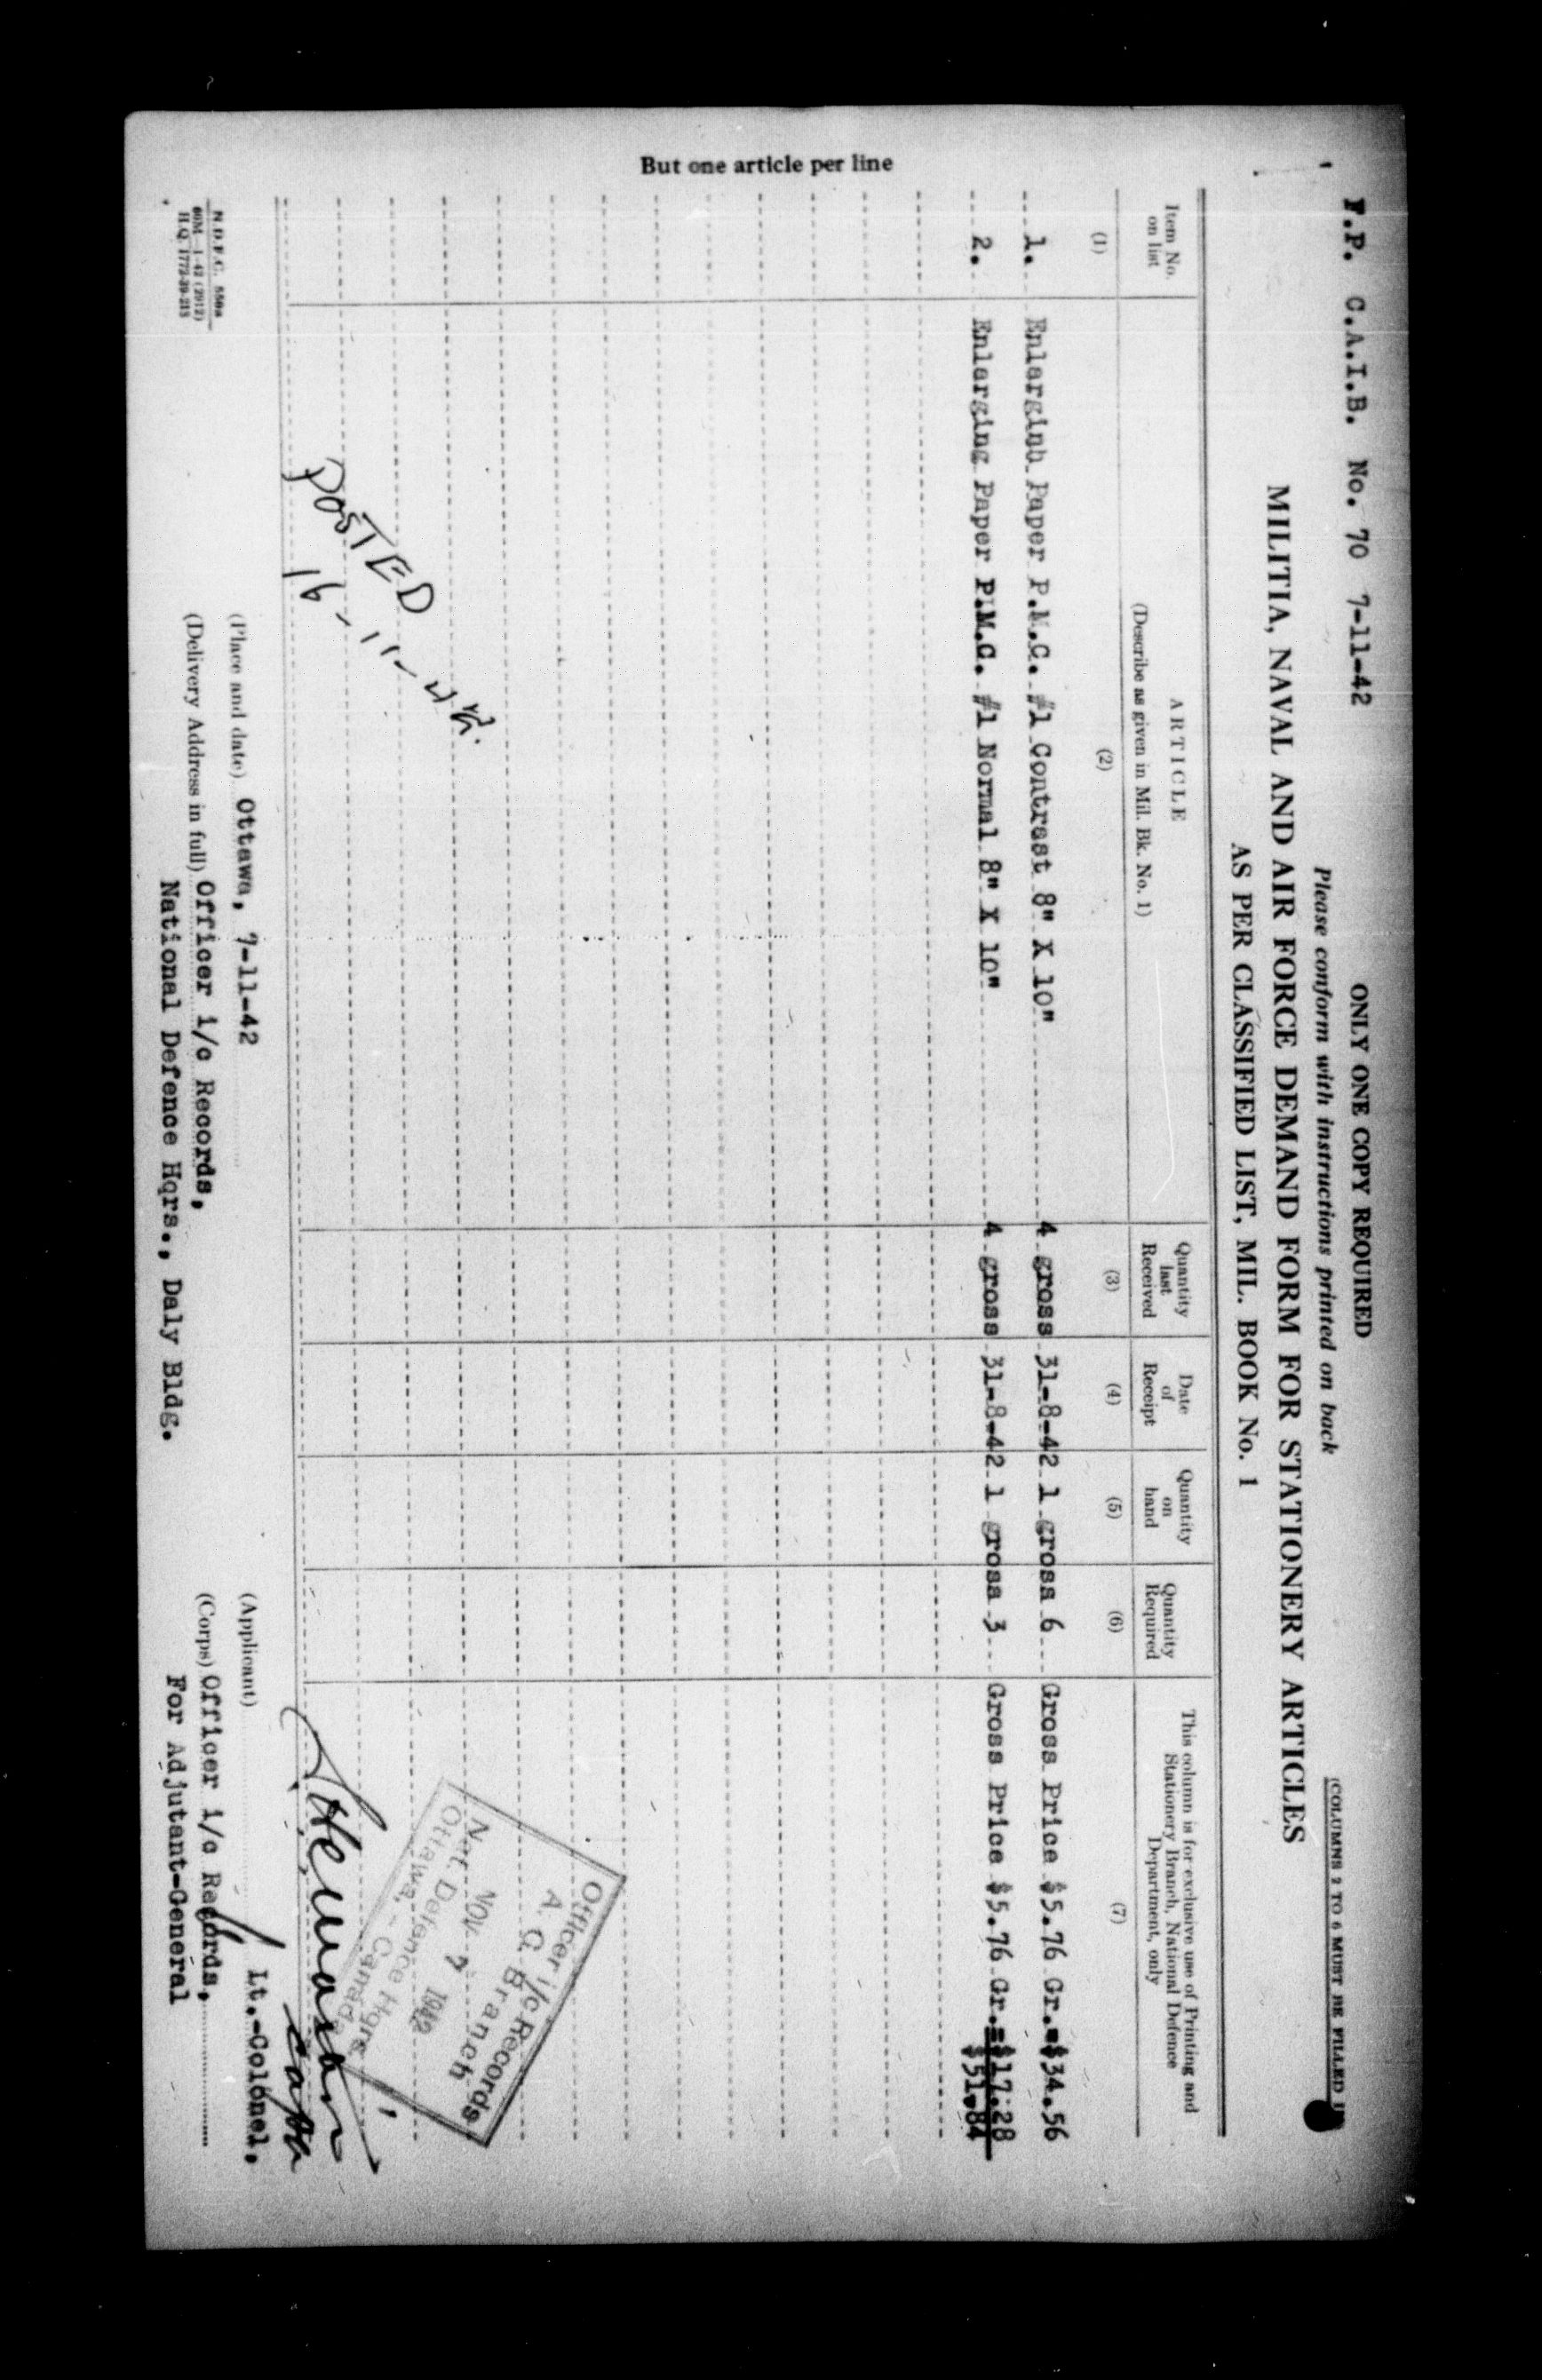 F.P. C.A.I.B. No. 70 7-11-42
ONLY ONE COPY REQUIRED
Please conform with instructions printed on back
(COLUMNS 2 TO 6 MUST BE FILLED
MILITIA, NAVAL AND AIR FORCE DEMAND FORM FOR STATIONERY ARTICLES
AS PER CLASSIFIED LIST, MIL. BOOK No. 1
But one article per line
Item No. on list (1)
ARTICLE
(Describe as given in Mil. Bk. No. 1)
(2)
Quantity last Received (3)
Date of Receipt (4)
Quantity on hand (5)
Quantity Required (6)
This column is for exclusive use of Printing and
Stationery Branch, National Defence
Department, only
(7)
1. Enlarginh Paper P.M.C. #1 Contrast 8" X 10" 4 gross 31-8-42 1 gross 6 Gross Price $5.76 Gr.=$34.56
2. Enlarging Paper P.M.C. #1 Normal 8" X 10" 4 gross 31-8-42 1 gross 3 Gross Price $5.76 Gr.=$17.28
$51.84
POSTED
16-11-42.
Officer i/c Records
A. G. Branch
NOV 7 1942
Nat. Defence Hqrs.
Ottawa, - Canada
(Place and date) Ottawa, 7-11-42
(Delivery Address in full) Officer i/c Records,
National Defence Hqrs., Daly Bldg.
(Applicant) Lt.-Colonel,
(Corps) Officer i/c Records,
For Adjutant-General
N.D.F.C. 550a
60M-1-42 (2912)
H.Q. 1772-39-215